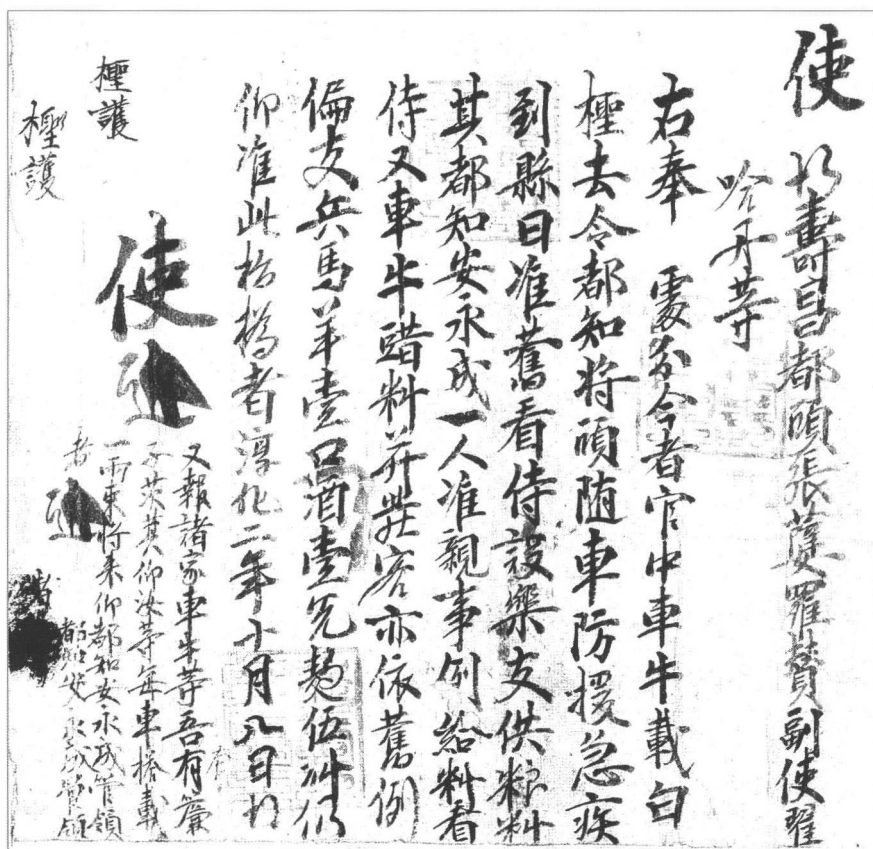 使 帖壽昌都頭張薩羅贊副使翟
哈丹等
右奉 處分今者官中車牛載白
檉去令都知將頭隨車防援急疾
到縣日准舊看侍設樂支供粮料
其都知安永成一人准親事例給料看
侍又車牛䤃料并莊客亦依舊例
偏支兵馬羊壹口酒壹瓮麪伍碩仍
仰准此指撝者淳化二年十月八日帖
使
又報諸家車牛等吾有
不 茨萁仰汝等每車搭載
一兩束將来仰都知安永成管領
者
都知安永成管領
者
檉護
檉護